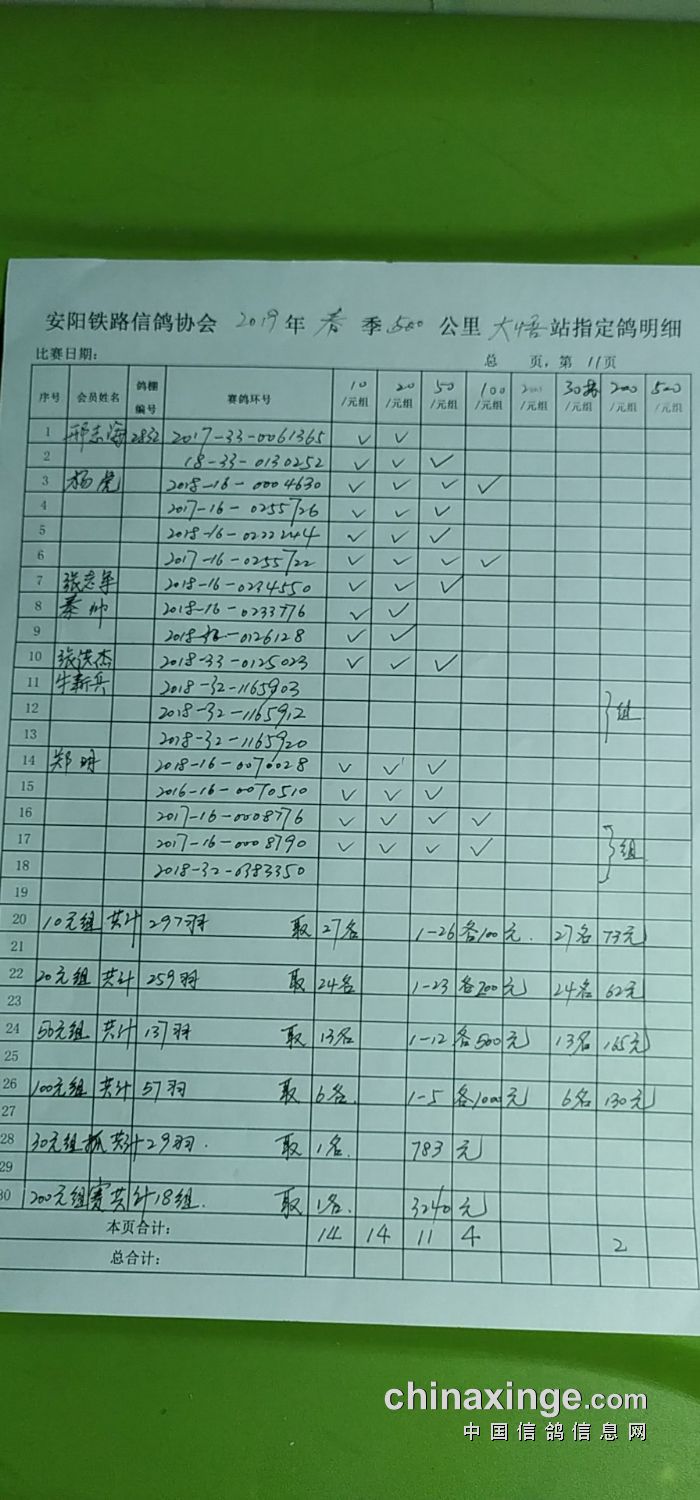 安阳铁路信鸽协会 2019 年 春 季 500 公里 大悟 站指定鸽明细
比赛日期: 总 页, 第 11 页
序号 会员姓名 鸽棚编号 赛鸽环号 10/元组 20/元组 50/元组 100/元组 200/元组 30抓/元组 200/元组 500/元组
1 邢志海 2832 2017-33-0061365 ✓ ✓
2 18-33-0130252 ✓ ✓ ✓
3 杨虎 2018-16-0004630 ✓ ✓ ✓ ✓
4 2017-16-0255726 ✓ ✓ ✓
5 2018-16-0222244 ✓ ✓ ✓
6 2017-16-0255722 ✓ ✓ ✓ ✓
7 张志军 2018-16-0234550 ✓ ✓ ✓
8 秦帅 2018-16-0233776 ✓ ✓
9 2018-16-0126128 ✓ ✓
10 张洪杰 2018-33-0125023 ✓ ✓ ✓
11 牛新兵 2018-32-1165903
12 2018-32-1165912 组
13 2018-32-1165920
14 郑明 2018-16-0070028 ✓ ✓ ✓
15 2016-16-0070510 ✓ ✓ ✓
16 2017-16-0008776 ✓ ✓ ✓ ✓
17 2017-16-0008790 ✓ ✓ ✓ ✓ 组
18 2018-32-0383350
19
20 10元组 共计 297羽 取 27名 1-26 各100元. 27名 73元
21
22 20元组 共计 259羽 取 24名 1-23 各200元 24名 62元
23
24 50元组 共计 137羽 取 13名 1-12 各500元 13名 165元
25
26 100元组 共计 57羽 取 6名. 1-5 各1000元 6名 130元
27
28 30元组 抓 共计 29羽. 取 1名. 783元
29
30 200元组赛 共计 18组. 取 1名. 3240元
本页合计: 14 14 11 4 2
总合计:
chinaxinge.com
中国信鸽信息网